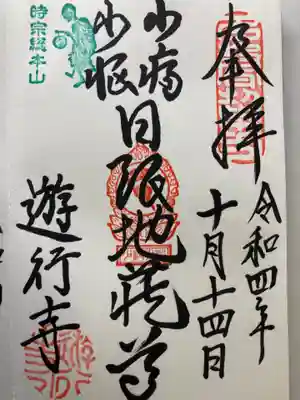 奉拝
令和四年
十月十四日
少病
少悩
日限地蔵尊
時宗総本山
遊行寺